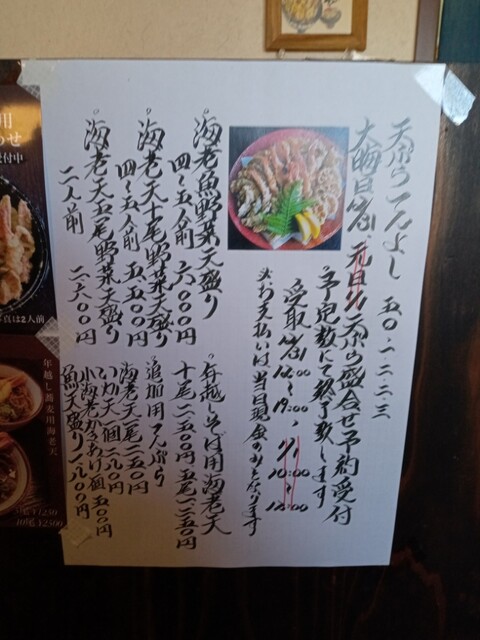 天ぷらてんよし 五〇-二-二三
大晦日12/31、元日1/1 天ぷら盛合せ予約受付
予定数にて終了致します
受取 12/31 12:00〜19:00、1/1 10:00〜
※お支払いは当日現金のみとなります
海老魚野菜天盛り
四〜五人前 六〇〇〇円
海老天十尾野菜天盛り
四〜五人前 五五〇〇円
海老天五尾野菜天盛り
二人前 二六〇〇円
年越しそば用海老天
十尾二五〇〇円 五尾一二五〇円
追加用てんぷら
海老天一尾二五〇円
いか天一個二八〇円
小海老かきあげ一個五〇〇円
魚天盛り一八〇〇円
用
わせ
受付中
写真は2人前
年越し蕎麦用海老天
5尾 ¥1250
10尾 ¥2500